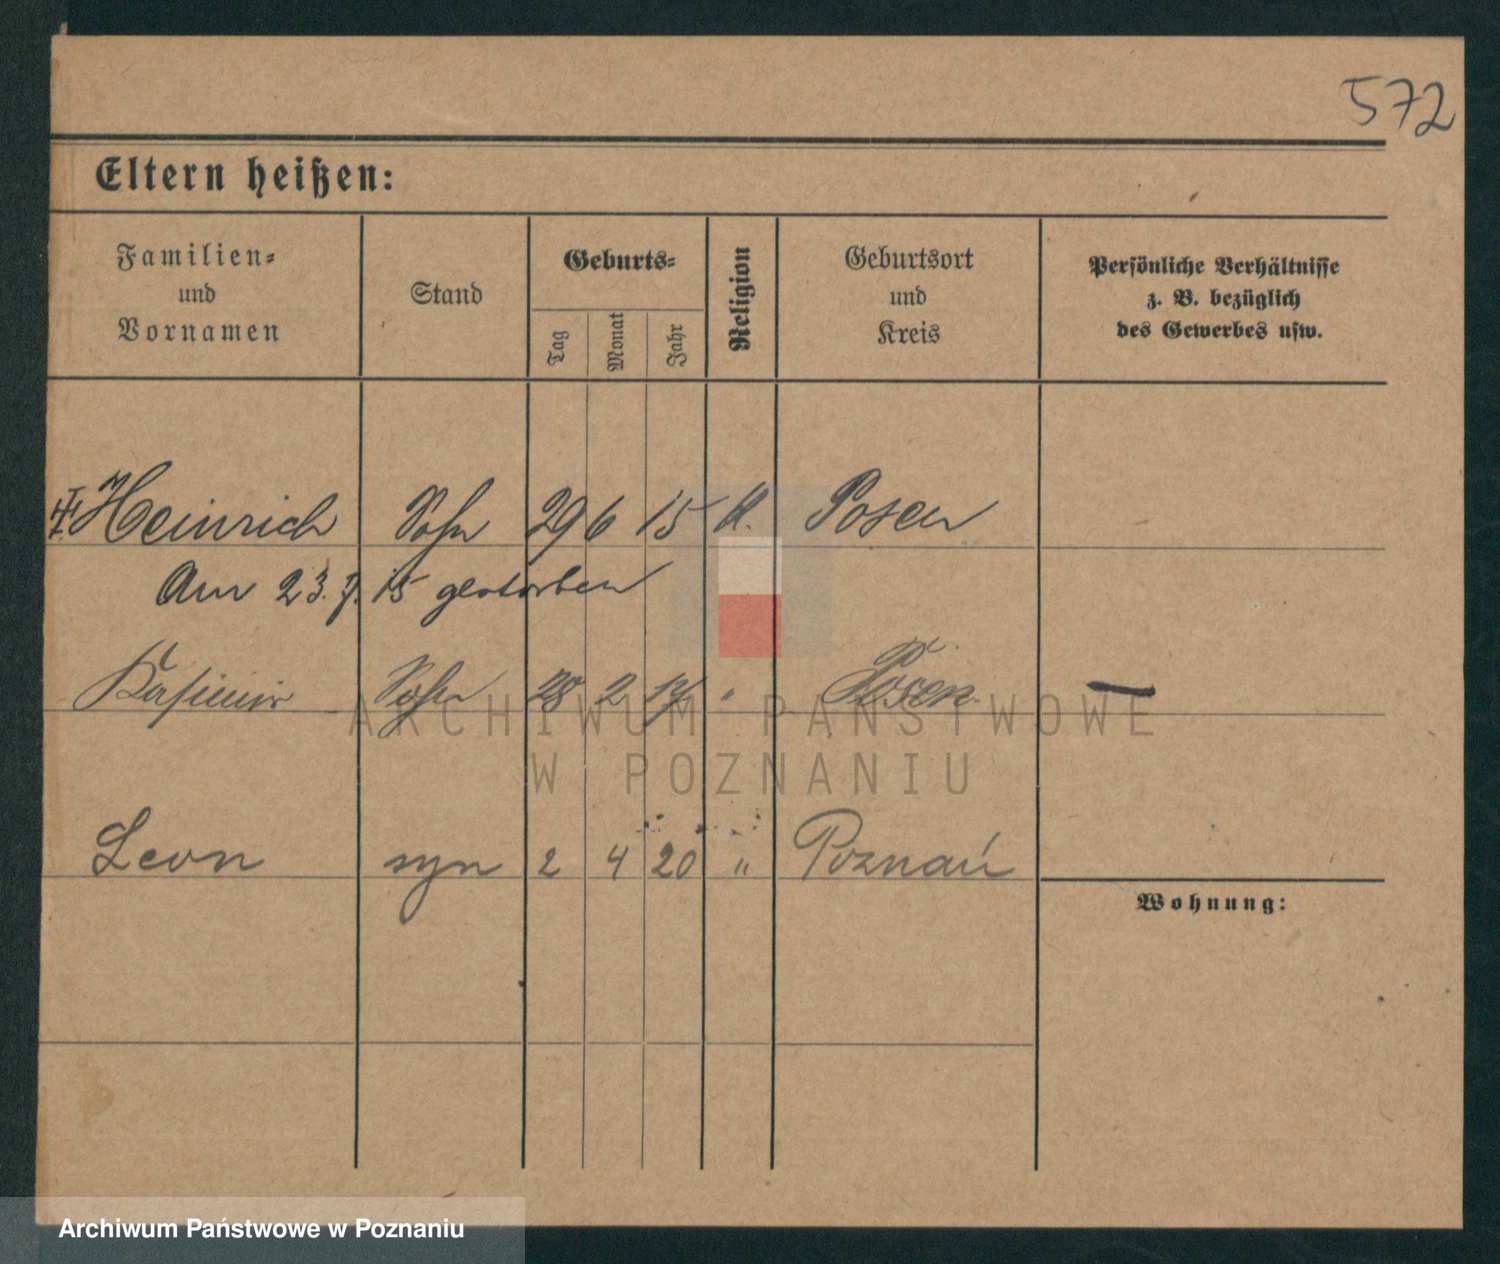 572
Eltern heißen:
Familien=
und
Vornamen
Stand
Geburts=
Tag
Monat
Jahr
Religion
Geburtsort
und
Kreis
Persönliche Verhältnisse
z. B. bezüglich
des Gewerbes usw.
Heinrich Sohn 29 6 15 k. Posen
Am 23.7.15 gestorben
Kasimir Sohn 28 2 17 " Posen —
ARCHIWUM PAŃSTWOWE
W POZNANIU
Leon syn 2 4 20 " Poznań
Wohnung:
Archiwum Państwowe w Poznaniu